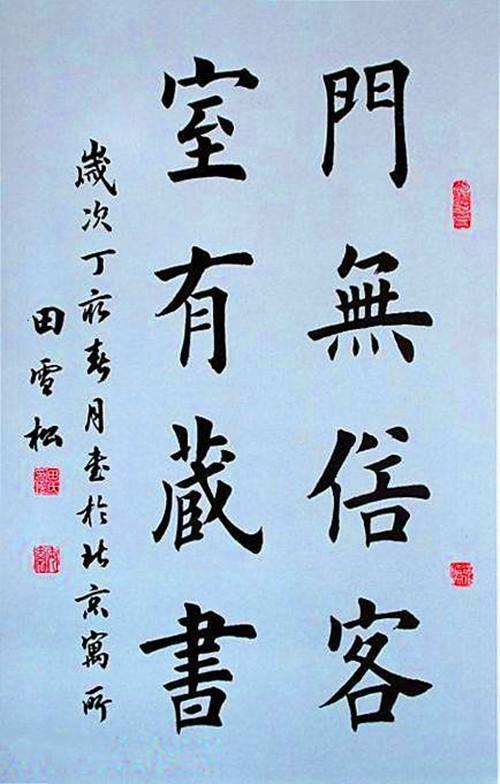 門無俗客
室有蔵書
歲次丁亥春月书於北京寓所
田雪松